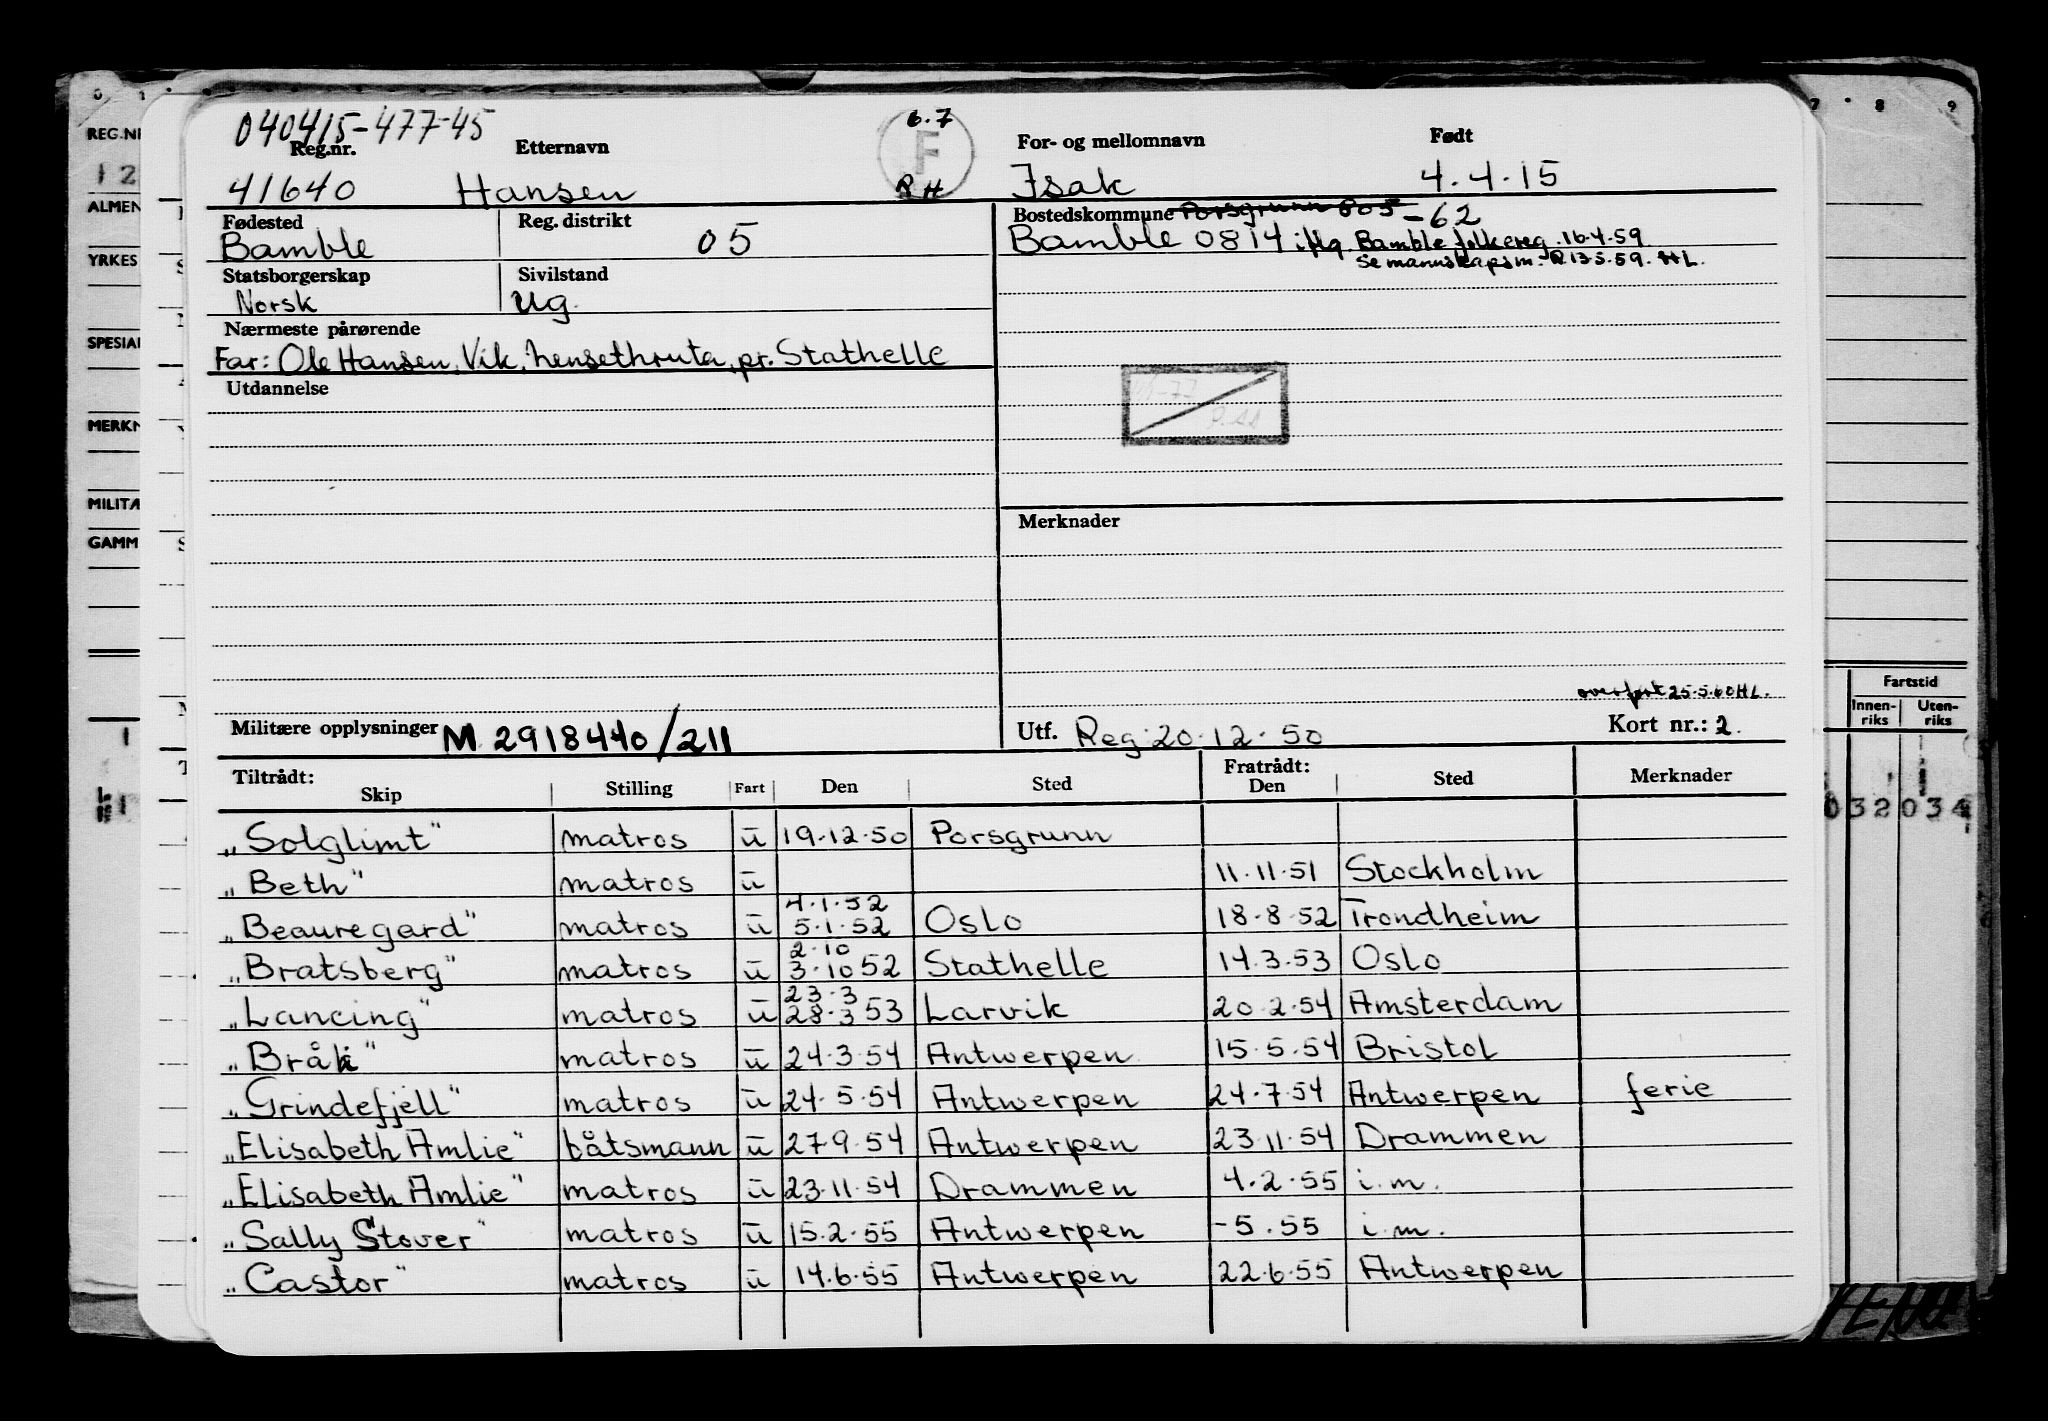 040415-477-45
6.7
F
Reg.nr. Etternavn For- og mellomnavn Født
41640 Hansen RH Isak 4.4.15
Fødested Reg. distrikt Bostedskommune Porsgrunn 805 -62
Bamble 05 Bamble 0814 iflg. Bamble folkereg. 16.4.59
Se mannskapsm. R 13.5.59. HL.
Statsborgerskap Sivilstand
Norsk ug.
Nærmeste pårørende
Far: Ole Hansen, Vik, hensethruta, pr. Stathelle
Utdannelse
Merknader
overført 25.5.60 HL.
Militære opplysninger M. 2918440/211 Utf. Reg. 20.12.50 Kort nr.: 2.
Tiltrådt: Fratrådt:
Skip Stilling Fart Den Sted Den Sted Merknader
„Solglimt" matros u 19.12.50 Porsgrunn
„Beth" matros u 11.11.51 Stockholm
4.1.52
„Beauregard" matros u 5.1.52 Oslo 18.8.52 Trondheim
2.10
„Bratsberg" matros u 3.10 52 Stathelle 14.3.53 Oslo
23.3
„Lancing" matros u 28.3 53 Larvik 20.2.54 Amsterdam
„Bråli" matros u 24.3.54 Antwerpen 15.5.54 Bristol
„Grindefjell" matros u 24.5.54 Antwerpen 24.7.54 Antwerpen ferie
„Elisabeth Amlie" båtsmann u 27.9.54 Antwerpen 23.11.54 Drammen
„Elisabeth Amlie" matros u 23.11.54 Drammen 4.2.55 i.m.
„Sally Stover" matros u 15.2.55 Antwerpen -5.55 i.m.
„Castor" matros u 14.6.55 Antwerpen 22.6.55 Antwerpen
REG.NR
12
ALMEN
YRKES
SPESIAL
MERKN
MILITÆ
GAMM
7 8 9
Fartstid
Innen-riks Uten-riks
032 034